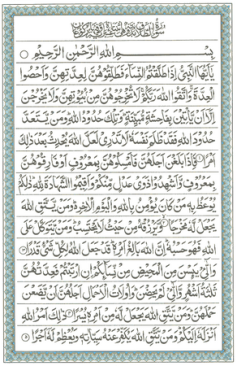 بِسْمِ اللهِ الرَّحْمٰنِ الرَّحِيْمِ
يٰۤاَيُّهَا النَّبِىُّ اِذَا طَلَّقْتُمُ النِّسَآءَ فَطَلِّقُوْهُنَّ لِعِدَّتِهِنَّ وَاَحْصُوا
الْعِدَّةَ وَاتَّقُوا اللهَ رَبَّكُمْ لَا تُخْرِجُوْهُنَّ مِنْۢ بُيُوْتِهِنَّ وَلَا يَخْرُجْنَ
اِلَّاۤ اَنْ يَّاْتِيْنَ بِفَاحِشَةٍ مُّبَيِّنَةٍ وَتِلْكَ حُدُوْدُ اللهِ وَمَنْ يَّتَعَدَّ
حُدُوْدَ اللهِ فَقَدْ ظَلَمَ نَفْسَهٗ لَا تَدْرِىْ لَعَلَّ اللهَ يُحْدِثُ بَعْدَ ذٰلِكَ
اَمْرًا فَاِذَا بَلَغْنَ اَجَلَهُنَّ فَاَمْسِكُوْهُنَّ بِمَعْرُوْفٍ اَوْ فَارِقُوْهُنَّ
بِمَعْرُوْفٍ وَّاَشْهِدُوْا ذَوَىْ عَدْلٍ مِّنْكُمْ وَاَقِيْمُوا الشَّهَادَةَ لِلهِ ذٰلِكُمْ
يُوْعَظُ بِهٖ مَنْ كَانَ يُؤْمِنُ بِاللهِ وَالْيَوْمِ الْاٰخِرِ وَمَنْ يَّتَّقِ اللهَ
يَجْعَلْ لَّهٗ مَخْرَجًا وَّيَرْزُقْهُ مِنْ حَيْثُ لَا يَحْتَسِبُ وَمَنْ يَّتَوَكَّلْ عَلَى
اللهِ فَهُوَ حَسْبُهٗ اِنَّ اللهَ بَالِغُ اَمْرِهٖ قَدْ جَعَلَ اللهُ لِكُلِّ شَىْءٍ قَدْرًا
وَالّٰٓـِٔىْ يَئِسْنَ مِنَ الْمَحِيْضِ مِنْ نِّسَآئِكُمْ اِنِ ارْتَبْتُمْ فَعِدَّتُهُنَّ
ثَلٰثَةُ اَشْهُرٍ وَّالّٰٓـِٔىْ لَمْ يَحِضْنَ وَاُولَاتُ الْاَحْمَالِ اَجَلُهُنَّ اَنْ يَّضَعْنَ
حَمْلَهُنَّ وَمَنْ يَّتَّقِ اللهَ يَجْعَلْ لَّهٗ مِنْ اَمْرِهٖ يُسْرًا ذٰلِكَ اَمْرُ اللهِ
اَنْزَلَهٗۤ اِلَيْكُمْ وَمَنْ يَّتَّقِ اللهَ يُكَفِّرْ عَنْهُ سَيِّاٰتِهٖ وَيُعْظِمْ لَهٗۤ اَجْرًا